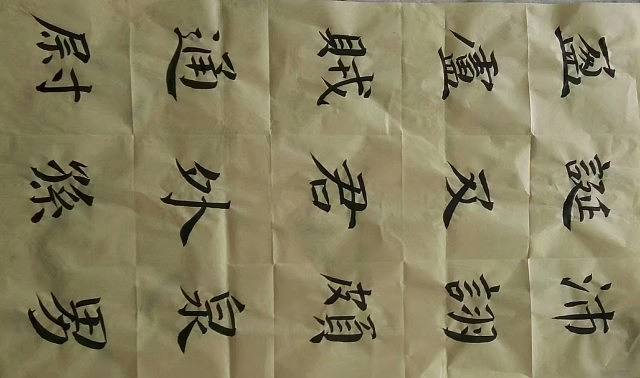 誕沛
盧又詡
賊君頗
通外泉
尉孫男